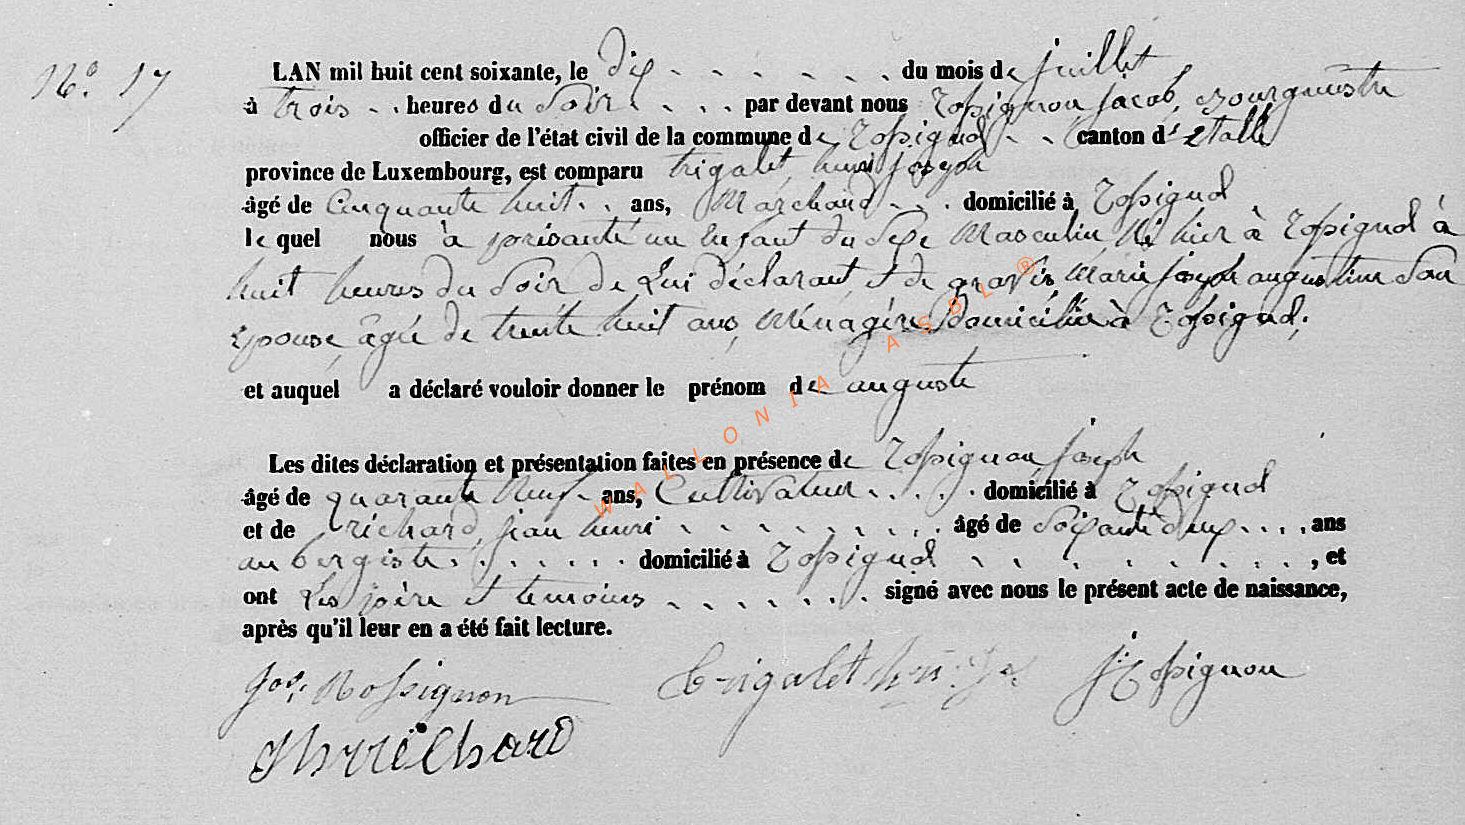 N.º 17
LAN mil huit cent soixante, le dix du mois de juillet
à trois heures du Soir par devant nous Rossignon jacob, Bourgmestre
officier de l'état civil de la commune de Rossignol canton d'Etalle
province de Luxembourg, est comparu trigalet, henri joseph
âgé de Cinquante huit ans, Marchand domicilié à Rossignol
le quel nous à présenté un Enfant du Sexe Masculin, Né hier à Rossignol à
huit heures du Soir de Lui déclarant et de gravis, Marie joseph augustine Son
Epouse, âgée de trente huit ans, Ménagère, Domiciliée à Rossignol,
et auquel a déclaré vouloir donner le prénom de auguste
Les dites déclaration et présentation faites en présence de Rossignon joseph
âgé de quarante Neuf ans, Cultivateur domicilié à Rossignol
et de richard, jean henri âgé de Soixante deux ans
aubergiste domicilié à Rossignol , et
ont Les père et temoins signé avec nous le présent acte de naissance,
après qu'il leur en a été fait lecture.
Jos. Rossignon Trigalet hri Js J Rossignon
Jh richard
WALLONIA ASBL ®